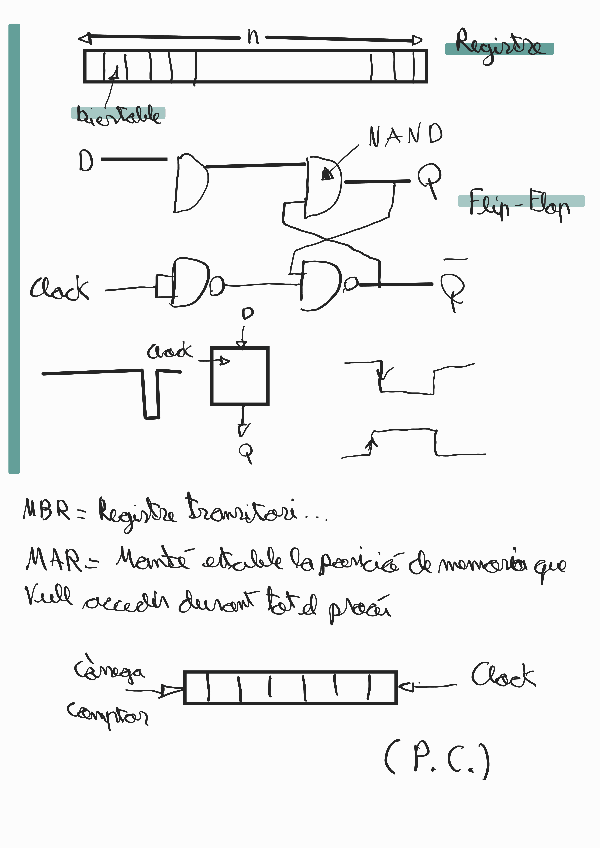 n
Registre
biestable
NAND
D
Q
Flip-Flop
Clock
Q̅
D
Clock
Q
MBR = Registre transitori...
MAR = Manté estable la posició de memoria que
Vull accedir durant tot el procés
Càrrega
Clock
Comptar
(P.C.)